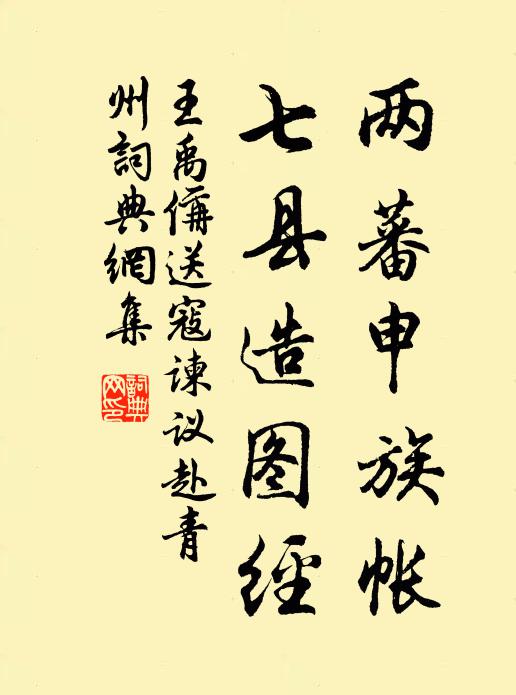 两蕃申族帐
七县造图经
王禹偁送寇谏议赴青
州詞典網集
詞典
网印